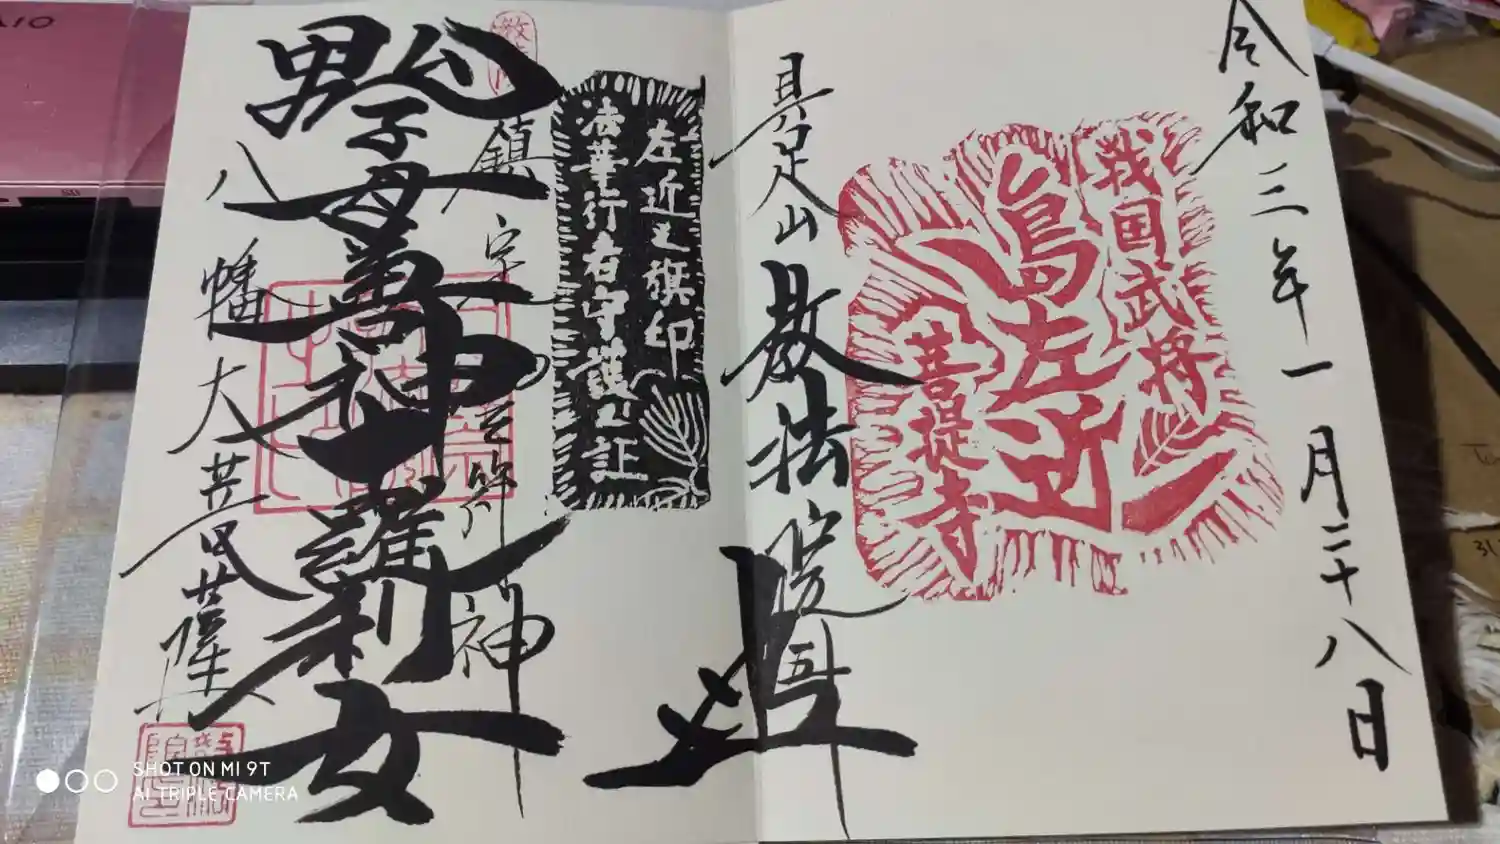 令和三年一月二十八日
戦国武将
島左近
菩提寺
具足山
教法院
左近之旗印
法華行者守護之証
鎮宅霊符神
鬼子母善神十羅刹女
八幡大菩薩
SHOT ON MI 9T
AI TRIPLE CAMERA